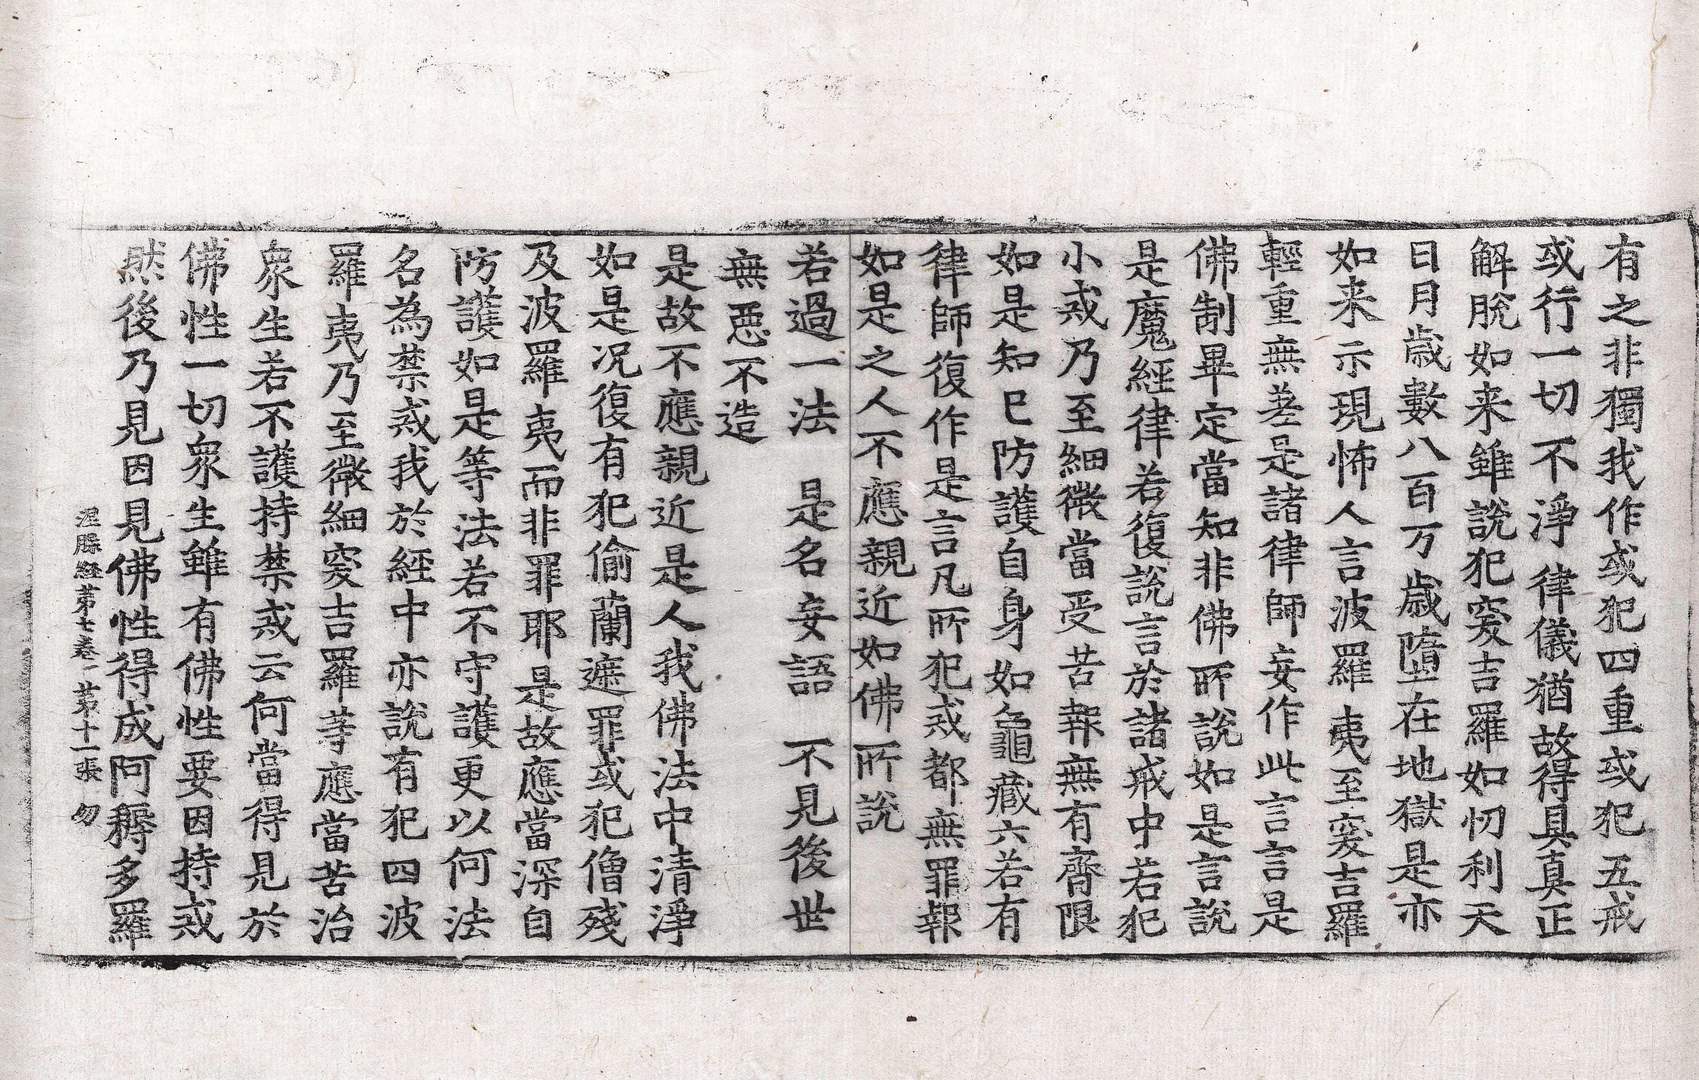 有之非獨我作或犯四重或犯五戒
或行一切不淨律儀猶故得具真正
解脫如来雖說犯突吉羅如忉利天
日月歳數八百万歳墮在地獄是亦
如来示現怖人言波羅夷至突吉羅
輕重無差是諸律師妄作此言言是
佛制畢定當知非佛所說如是言說
是魔經律若復說言於諸戒中若犯
小戒乃至細微當受苦報無有齊限
如是知已防護自身如龜藏六若有
律師復作是言凡所犯戒都無罪報
如是之人不應親近如佛所說
若過一法　是名妄語　不見後世
無惡不造
是故不應親近是人我佛法中清淨
如是况復有犯偷蘭遮罪或犯僧殘
及波羅夷而非罪耶是故應當深自
防護如是等法若不守護更以何法
名為禁戒我於經中亦說有犯四波
羅夷乃至微細突吉羅等應當苦治
衆生若不護持禁戒云何當得見於
佛性一切衆生雖有佛性要因持戒
然後乃見因見佛性得成阿耨多羅
涅槃經第七卷　第十一張　勿